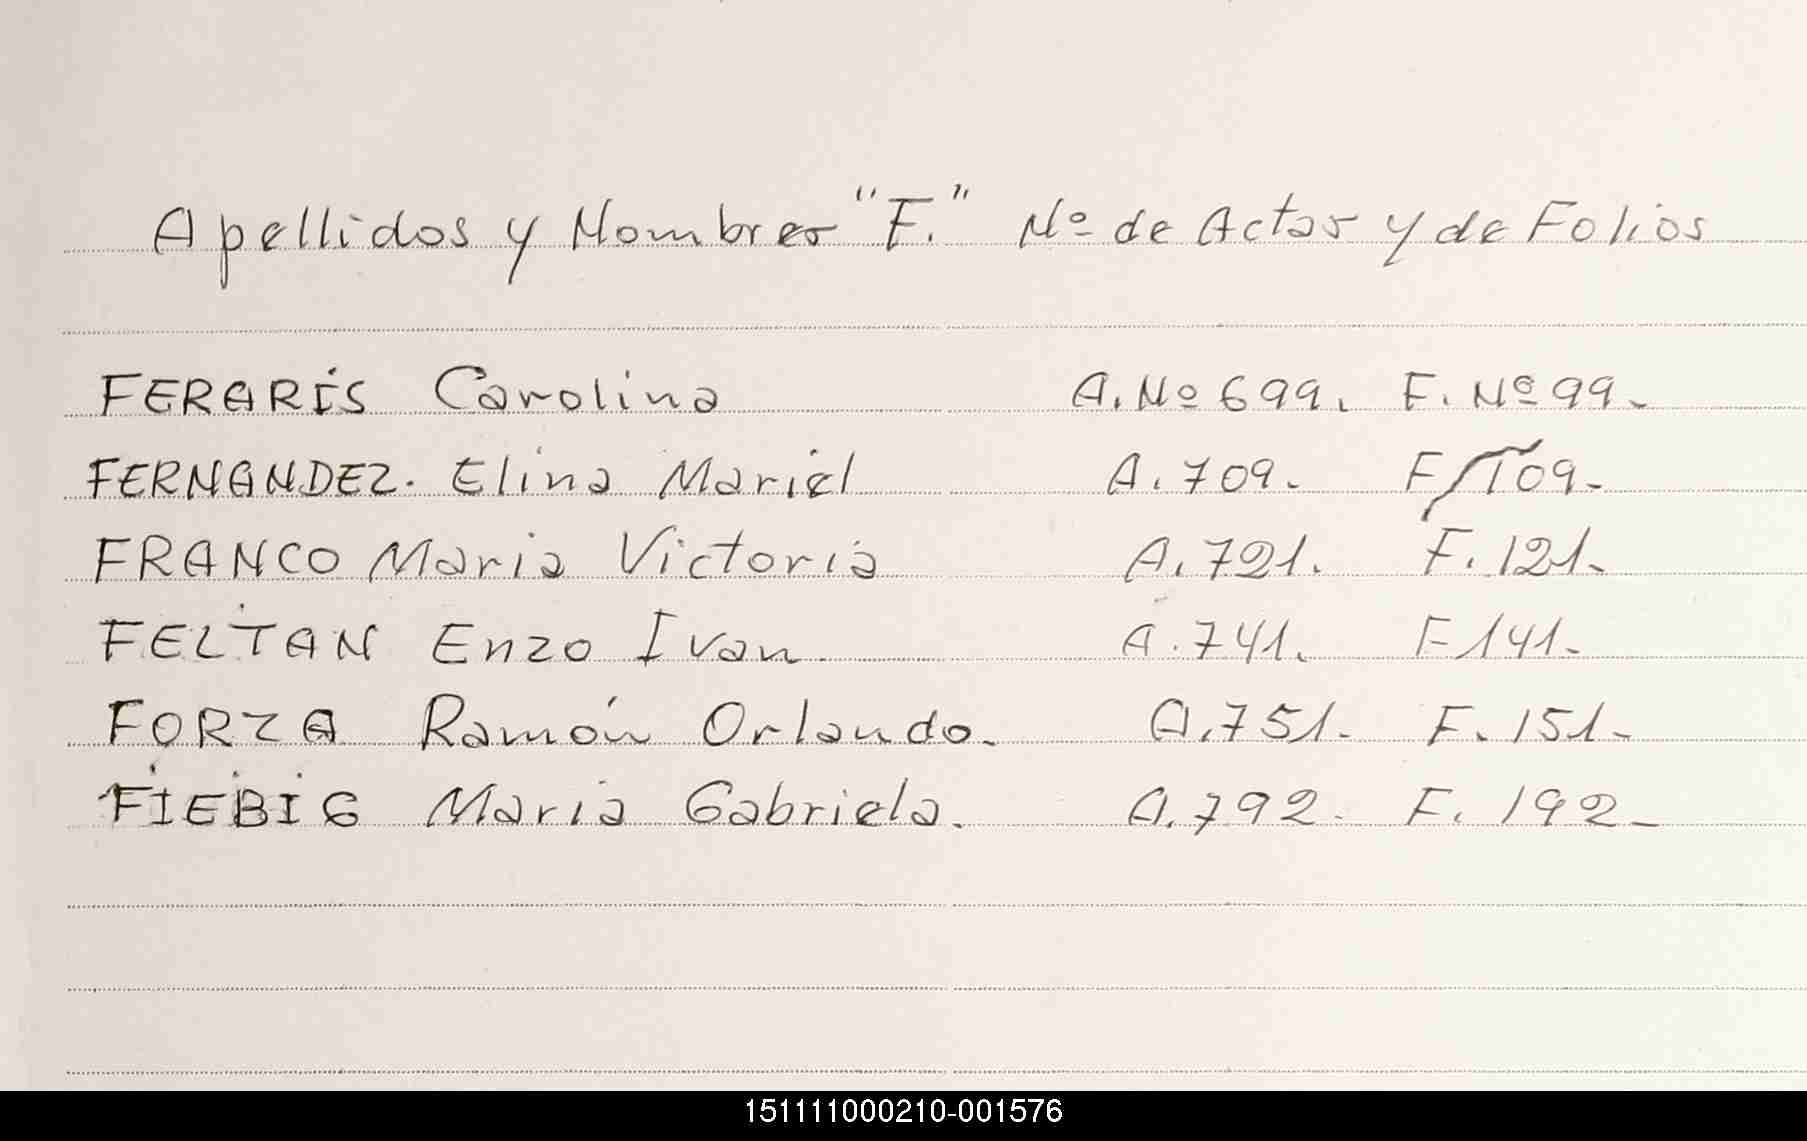 Apellidos y Nombres "F." Nº de Actas y de Folios
FERARIS Carolina A. Nº 699. F. Nº 99-
FERNANDEZ. Elina Mariel A. 709- F/109-
FRANCO Maria Victoria A. 721. F. 121-
FELTAN Enzo Ivan A. 741. F 141-
FORZA Ramón Orlando. A. 751- F. 151-
FIEBIG Maria Gabriela. A. 792- F. 192-
151111000210-001576